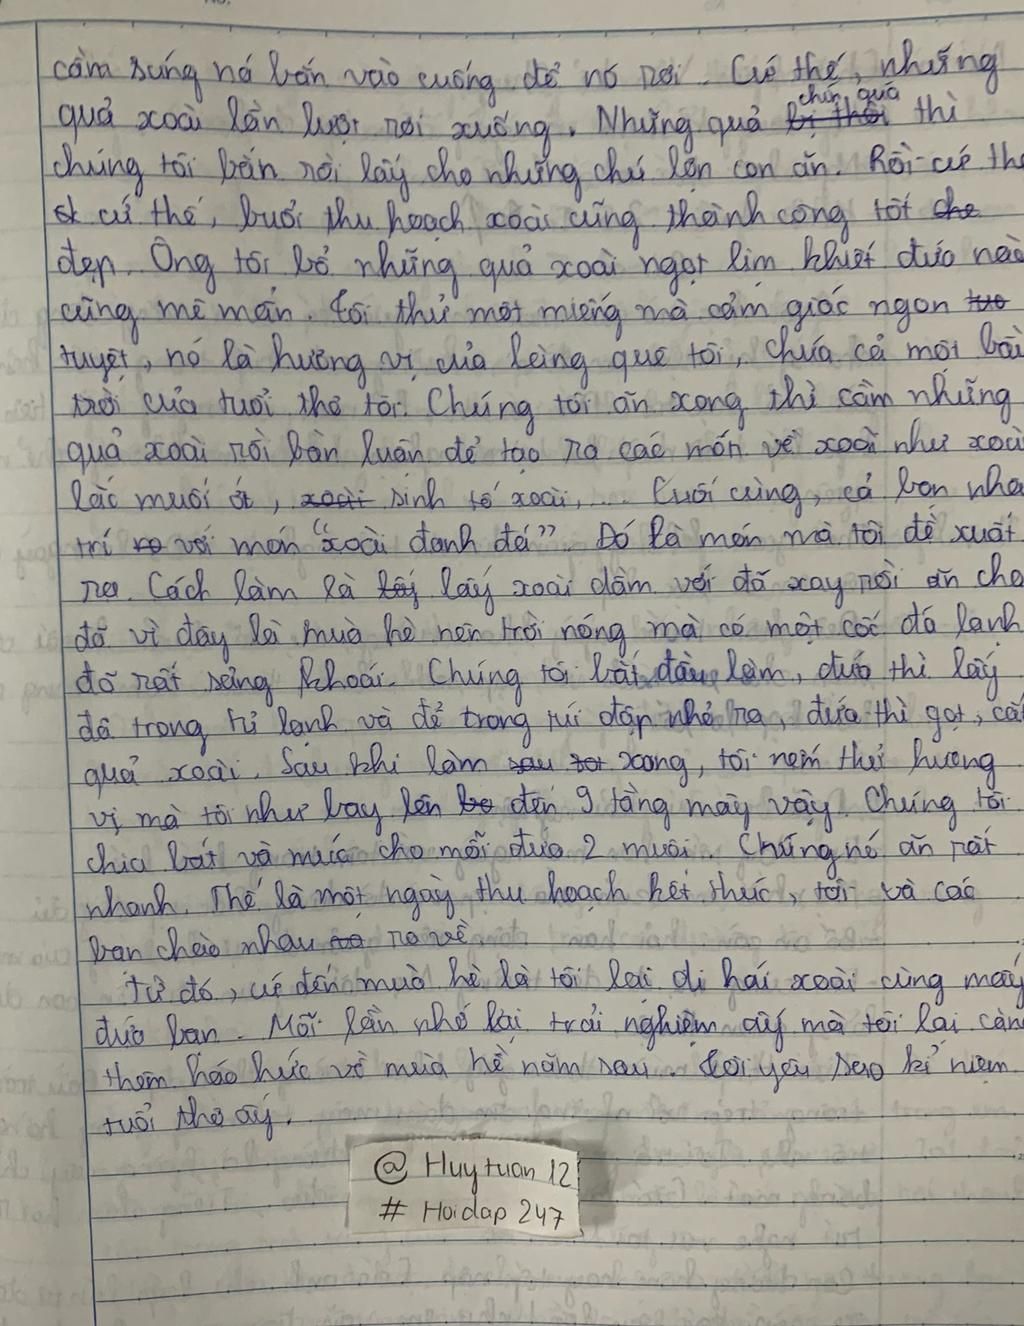 cầm súng ná bắn vào cuống để nó rơi. Cứ thế, những
quả xoài lần lượt rơi xuống. Những quả chín quá thì
chúng tôi bắn rồi lấy cho những chú lợn con ăn. Rồi cứ thế
cứ thế, buổi thu hoạch xoài cũng thành công tốt
đẹp. Ông tôi bổ những quả xoài ngọt lịm khiết đứa nào
cũng mê mẩn. Tôi thử một miếng mà cảm giác ngon
tuyệt, nó là hương vị của làng quê tôi, chứa cả một bầu
trời của tuổi thơ tôi. Chúng tôi ăn xong thì cầm những
quả xoài rồi bàn luận để tạo ra các món về xoài như xoài
lắc muối ớt, sinh tố xoài,... Cuối cùng, cả bọn nhất
trí với món "xoài đanh đá". Đó là món mà tôi đề xuất
ra. Cách làm là lấy xoài dầm với đá xay rồi ăn cho
đỡ vì đây là mùa hè nên trời nóng mà có một cốc đá lạnh
đỡ rất sảng khoái. Chúng tôi bắt đầu làm, đứa thì lấy
đá trong tủ lạnh và để trong túi đập nhỏ ra, đứa thì gọt, cắt
quả xoài. Sau khi làm xong, tôi nếm thử hương
vị mà tôi như bay lên đến 9 tầng mây vậy. Chúng tôi
chia bát và múc cho mỗi đứa 2 muôi. Chúng nó ăn rất
nhanh. Thế là một ngày thu hoạch kết thúc, tôi và các
bạn chào nhau ra về.
Từ đó, cứ đến mùa hè là tôi lại đi hái xoài cùng mấy
đứa bạn. Mỗi lần nhớ lại trải nghiệm ấy mà tôi lại càng
thêm háo hức về mùa hè năm sau. Tôi yêu sao kỉ niệm
tuổi thơ ấy.
@ Huytuan 12
# Hoidap 247